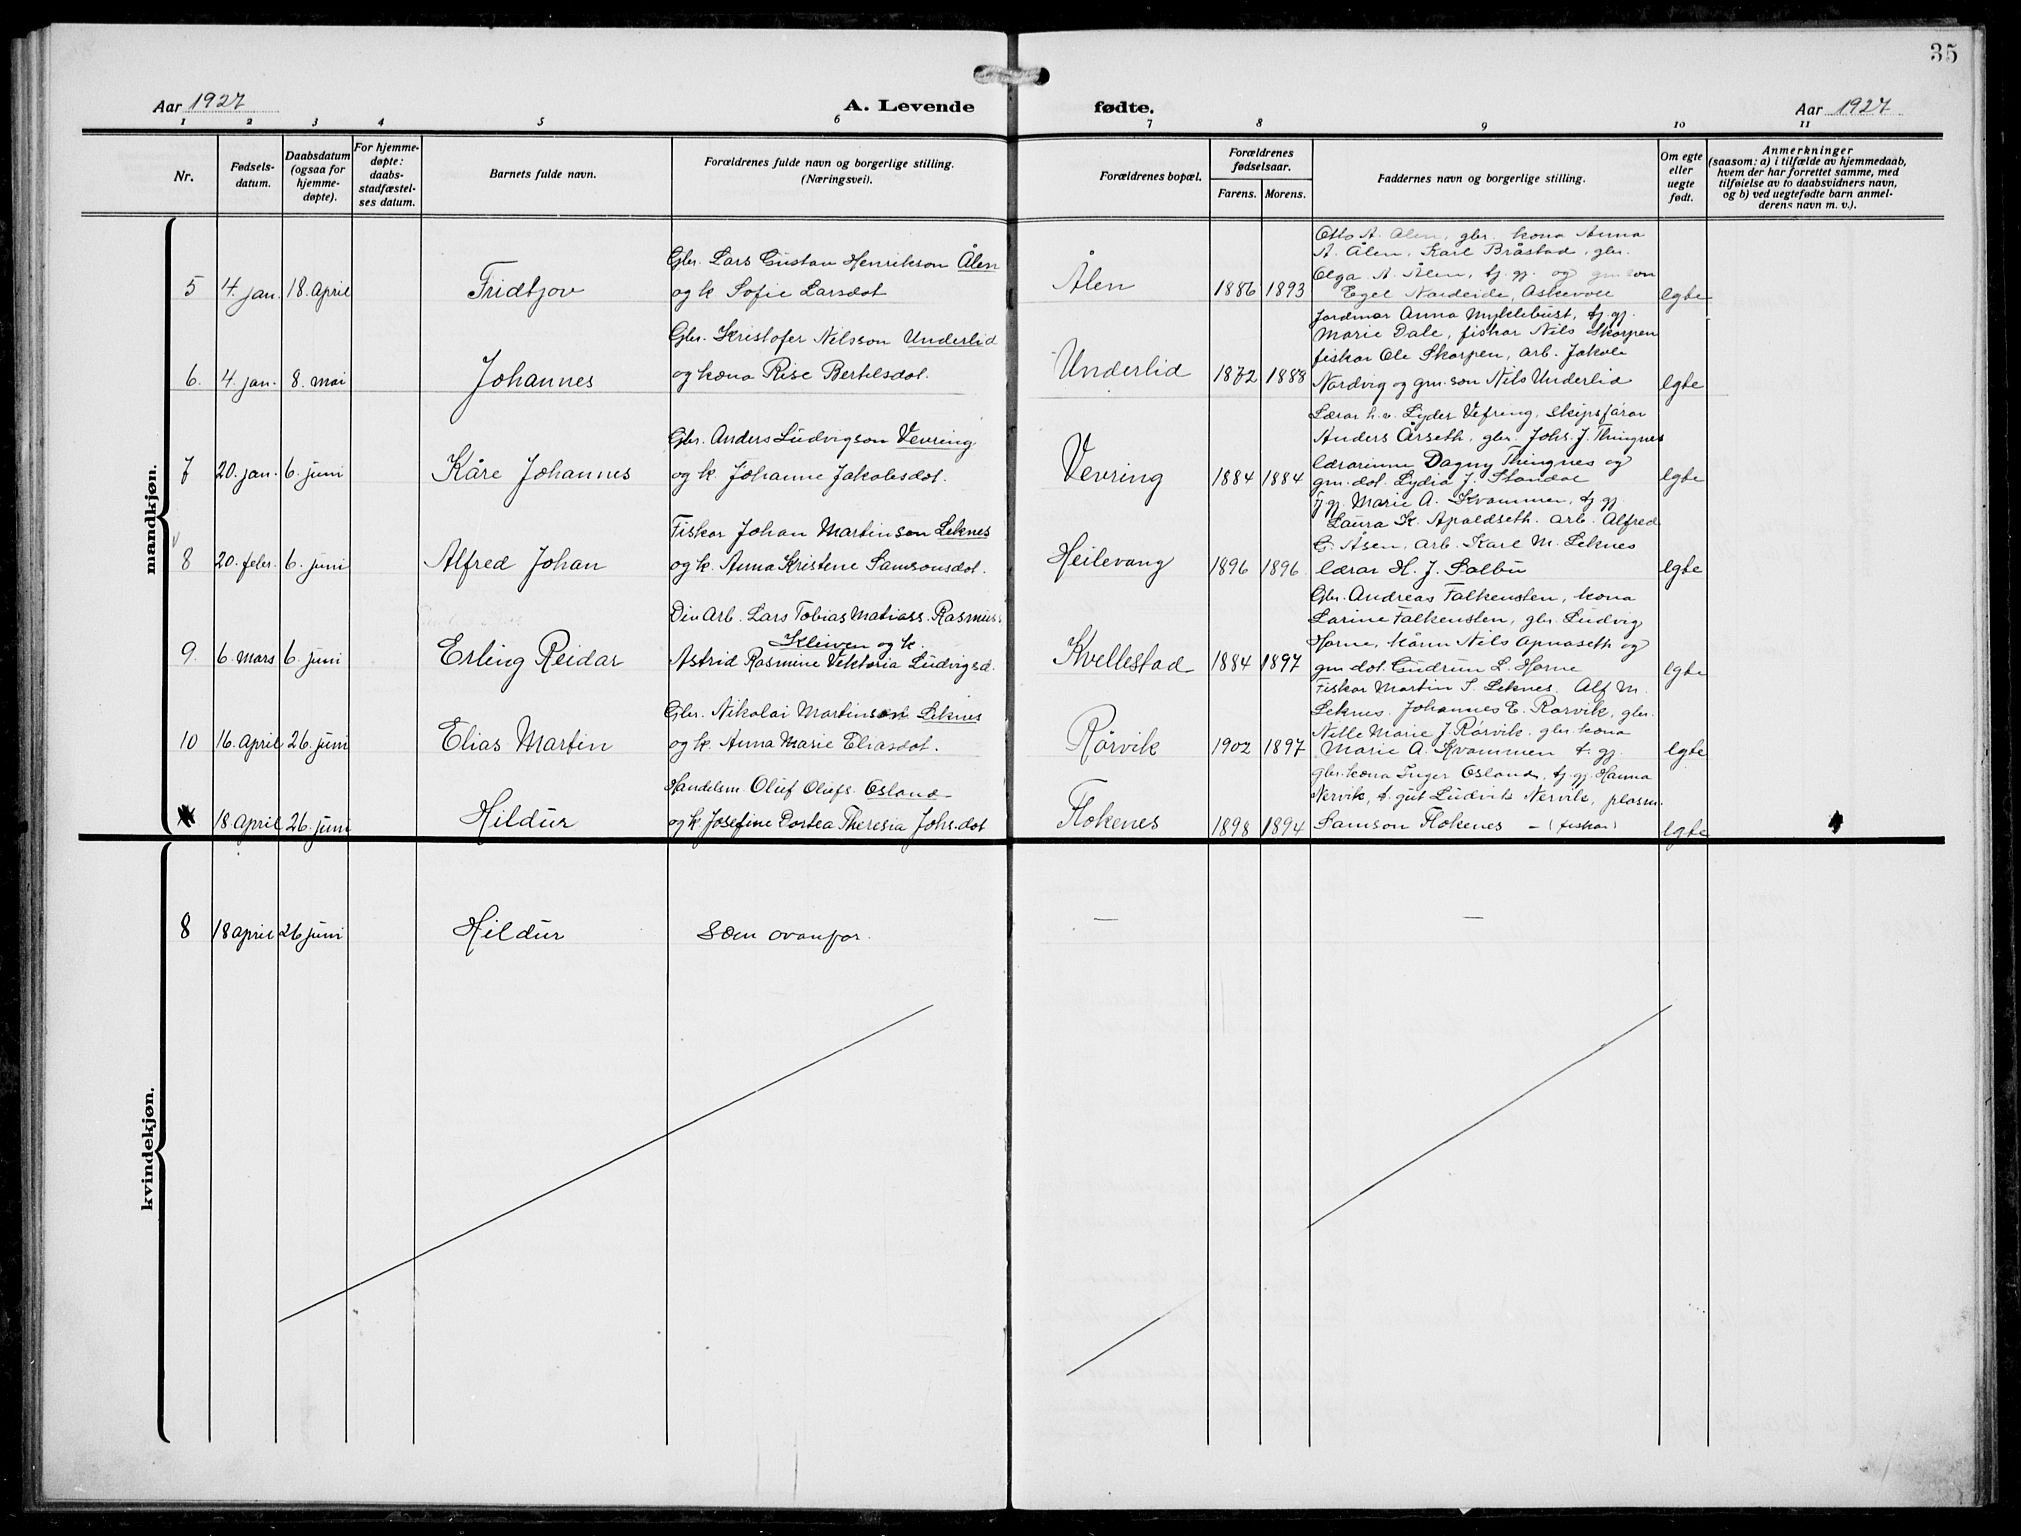 35
Aar 1927
A. Levende
fødte.
Aar 1927
1 2 3 4 5 6 7 8 9 10 11
Nr.
Fødsels-
datum.
Daabsdatum
(ogsaa for
hjemme-
døpte).
For hjemme-
døpte:
daabs-
stadfæstel-
ses datum.
Barnets fulde navn.
Forældrenes fulde navn og borgerlige stilling.
(Næringsvei).
Forældrenes bopæl.
Forældrenes
fødselsaar.
Farens. Morens.
Faddernes navn og borgerlige stilling.
Om egte
eller
uegte
født.
Anmerkninger
(saasom: a) i tilfælde av hjemmedaab,
hvem der har forrettet samme, med
tilføielse av to daabsvidners navn,
og b) ved uegtefødte barn anmel-
derens navn m. v.).
mandkjøn.
5 4. jan. 18. April Fridtjov
Gbr. Lars Gustav Henrikson Ålen
og k Sofie Larsdot
Ålen 1886 1893
Otto A. Ålen, gbr. kona Anna
A. Ålen, Karl Bråstad, gbr.
Olga A. Ålen, tj. gj. og gm son
Egel Nordeide, Askevoll
egte
6. 4. jan. 8. mai Johannes
Gbr. Kristofer Nilsson Underlid
og kona Rise Bertelsdot.
Underlid 1872 1888
Jordmor Anna Myklebust, tj. gj.
Marie Dale, fiskar Nils Skorpen
fiskar Ole Skorpen, arb. Jakob
Nordvig og gm. son Nils Underlid
egte
7 20. jan. 6. juni Kåre Johannes
Gbr. Anders Ludvigson Vevring
og k. Johanne Jakobsdot.
Vevring 1884 1884
Lærar h.v. Lyder Vefring, skipsførar
Anders Årseth, gbr. Johs. J. Thingnes
lærarinne Dagny Thingnes og
gm. dot. Lydia J. Standal
egte
8 20. febr. 6. juni Alfred Johan
Fiskar Johan Martinson Leknes
og k. Anna Kristene Samsonsdot.
Heilevang 1896 1896
tj gj Marie A. Kvammen, tj gj.
Laura K. Apaldseth. arb. Alfred
G. Åsen, arb. Karl M. Leknes
lærar H. J. Solbu
egte
9. 6. mars 6. juni Erling Reidar
Div Arb. Lars Tobias Matiass. Rasmus-
Kleiven og k.
Astrid Rasmine Viktoria Ludvigsd.
Kvellestad 1884 1897
Gbr. Andreas Falkensten, kona
Larine Falkensten, gbr. Ludvig
Horne, kånn Nils Apnaseth og
gm dot. Gudrun L. Horne
egte
10 16. April 26. juni Elias Martin
Gbr. Nikolai Martinson Leknes
og k. Anna Marie Eliasdot.
Rørvik 1902 1897
Fiskar Martin S. Leknes. Alf M.
Leknes. Johannes E. Rørvik, gbr.
Nille Marie J. Rørvik. gbr. kona
Marie A. Kvammen t. gj.
egte
18 April 26. juni Hildur
Handelsm. Oluf Olufs. Osland
og k. Josefine Dortea Theresia Johs.dot
Flokenes 1898 1894
Gbr. kona Inger Osland, tj. gj. Hanna
Nervik, t. gut Ludvik Nervik, plassm.
Samson Flokenes – (fiskar)
egte
kvindekjøn.
8 18 april 26 juni Hildur Som ovanfor. — —